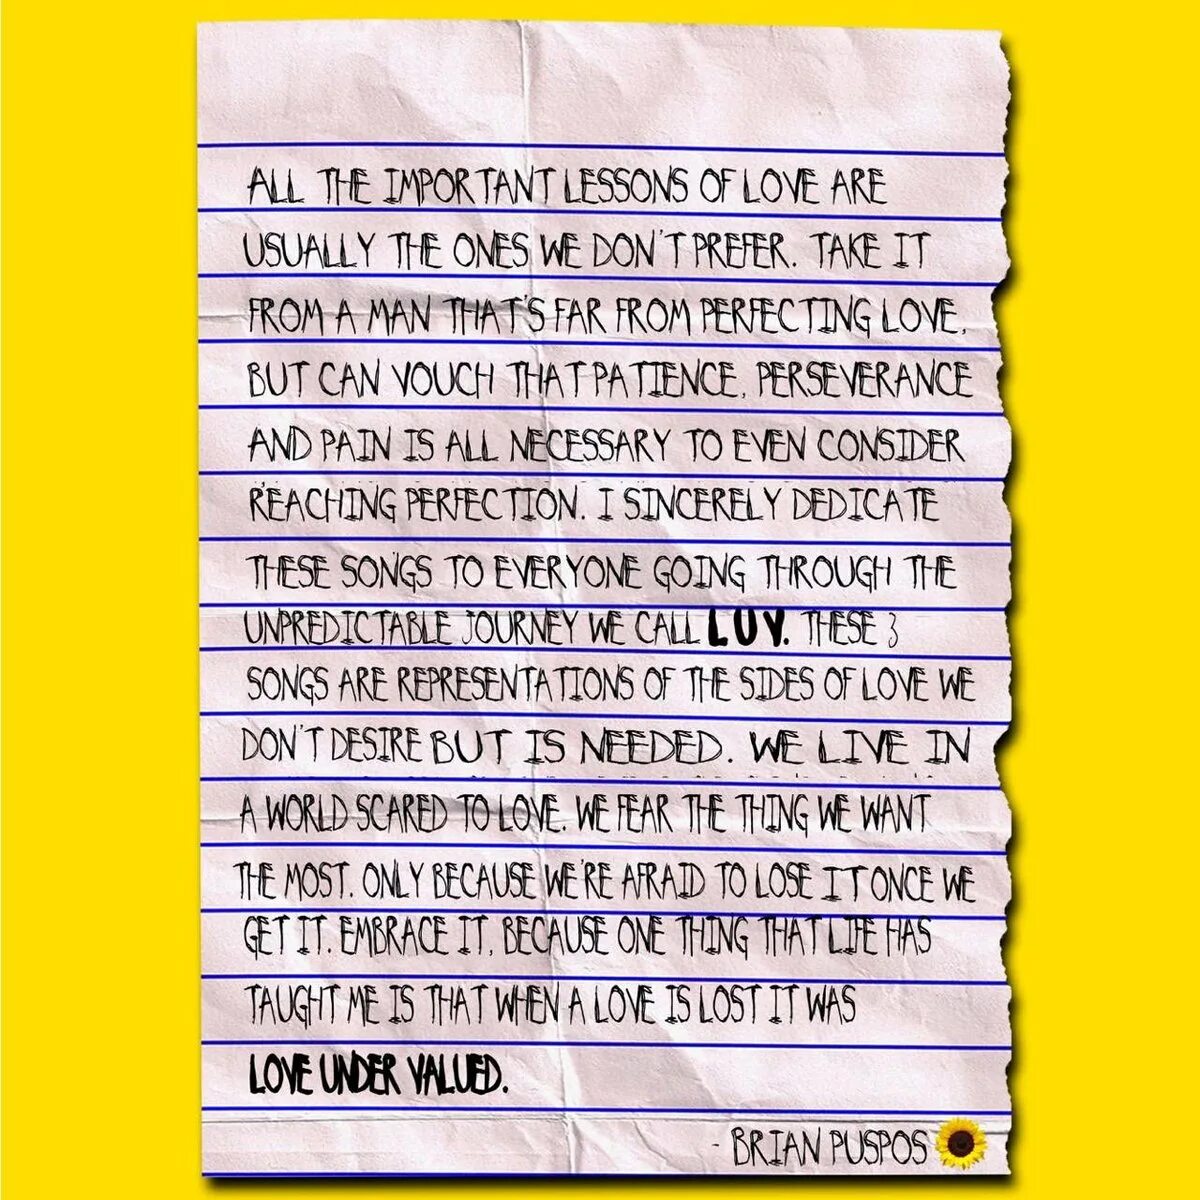 ALL THE IMPORTANT LESSONS OF LOVE ARE
USUALLY THE ONES WE DON'T PREFER. TAKE IT
FROM A MAN THAT'S FAR FROM PERFECTING LOVE,
BUT CAN VOUCH THAT PATIENCE, PERSEVERANCE
AND PAIN IS ALL NECESSARY TO EVEN CONSIDER
REACHING PERFECTION. I SINCERELY DEDICATE
THESE SONGS TO EVERYONE GOING THROUGH THE
UNPREDICTABLE JOURNEY WE CALL LUV. THESE 3
SONGS ARE REPRESENTATIONS OF THE SIDES OF LOVE WE
DON'T DESIRE BUT IS NEEDED. WE LIVE IN
A WORLD SCARED TO LOVE. WE FEAR THE THING WE WANT
THE MOST. ONLY BECAUSE WE'RE AFRAID TO LOSE IT ONCE WE
GET IT. EMBRACE IT, BECAUSE ONE THING THAT LIFE HAS
TAUGHT ME IS THAT WHEN A LOVE IS LOST IT WAS
LOVE UNDER VALUED.
- BRIAN PUSPOS